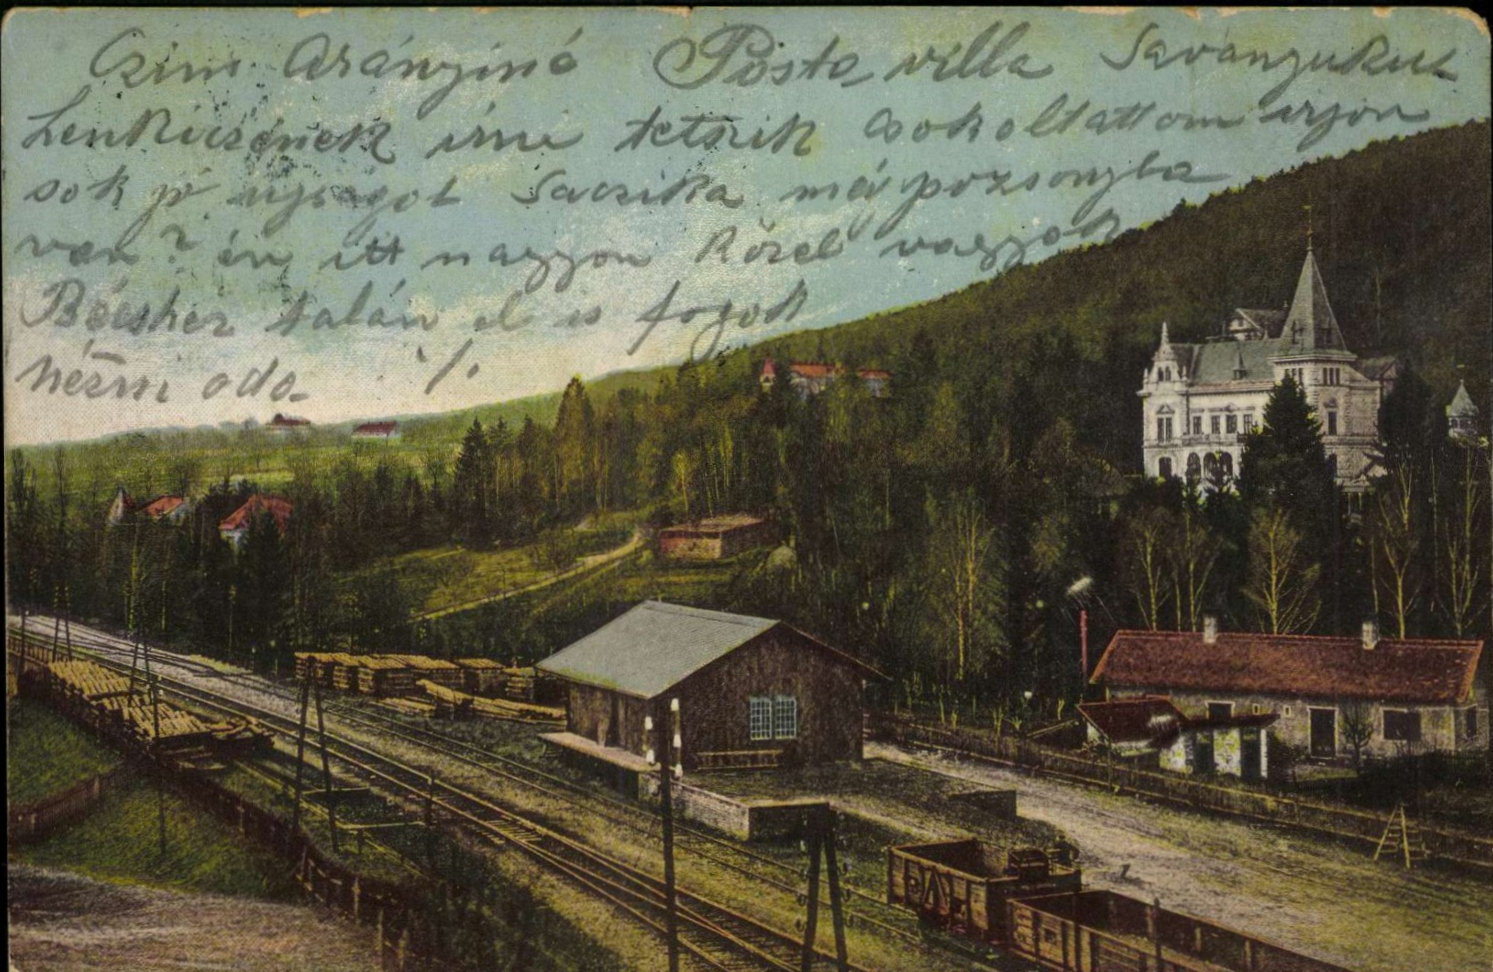 Czim Arányiné Posta villa Savanyukut
Lenkicsének irni tetszik csokoltattom irjon
sok jó ujságot Saczika már pozsonyba
van? én itt nagyon közel vagyok
Bécshez talán el is fogok
nézni oda ./.